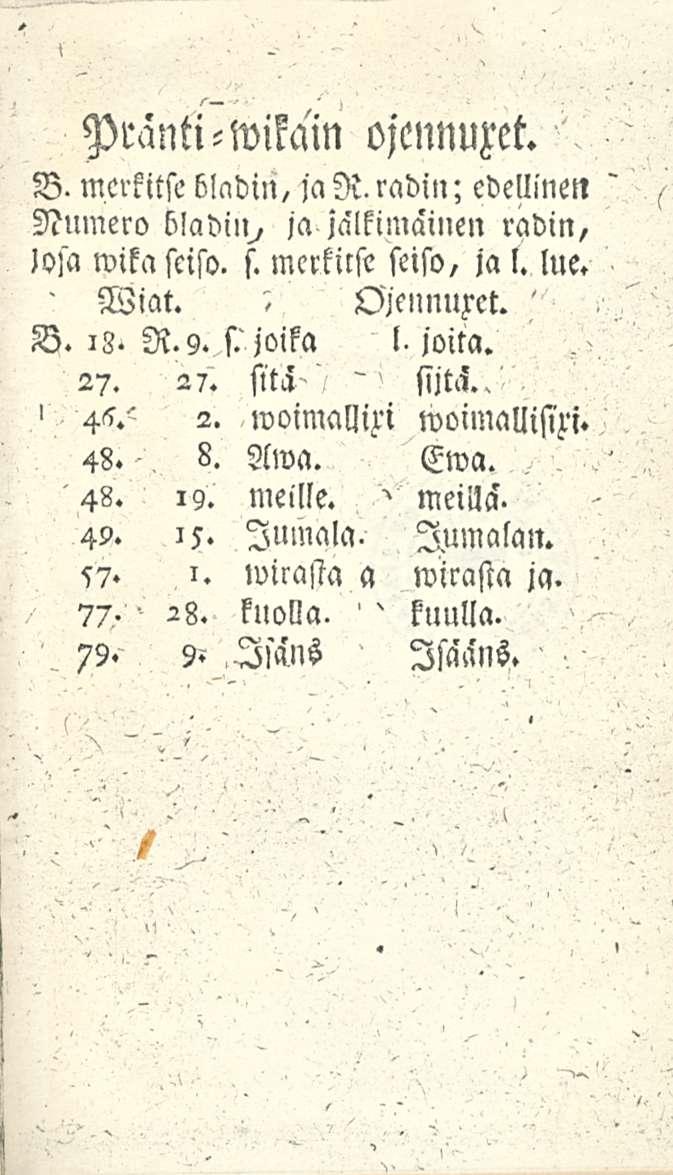 Pränti-wikain ojennuxet.
B. merkitse bladin, ja R. radin; edellinen
Numero bladin, ja jälkimäinen radin,
josa wika seiso. s. merkitse seiso, ja l. lue.
Wiat. Ojennuxet.
B. 18. R. 9. s. joika l. joita.
27. 27. sitä sijtä.
46. 2. woimallixi woimallisixi.
48. 8. Awa. Ewa.
48. 19. meille. meillä.
49. 15. Jumala. Jumalan.
57. 1. wirasta a wirasta ja.
77. 28. kuolla. kuulla.
79. 9. Isäns Isääns.